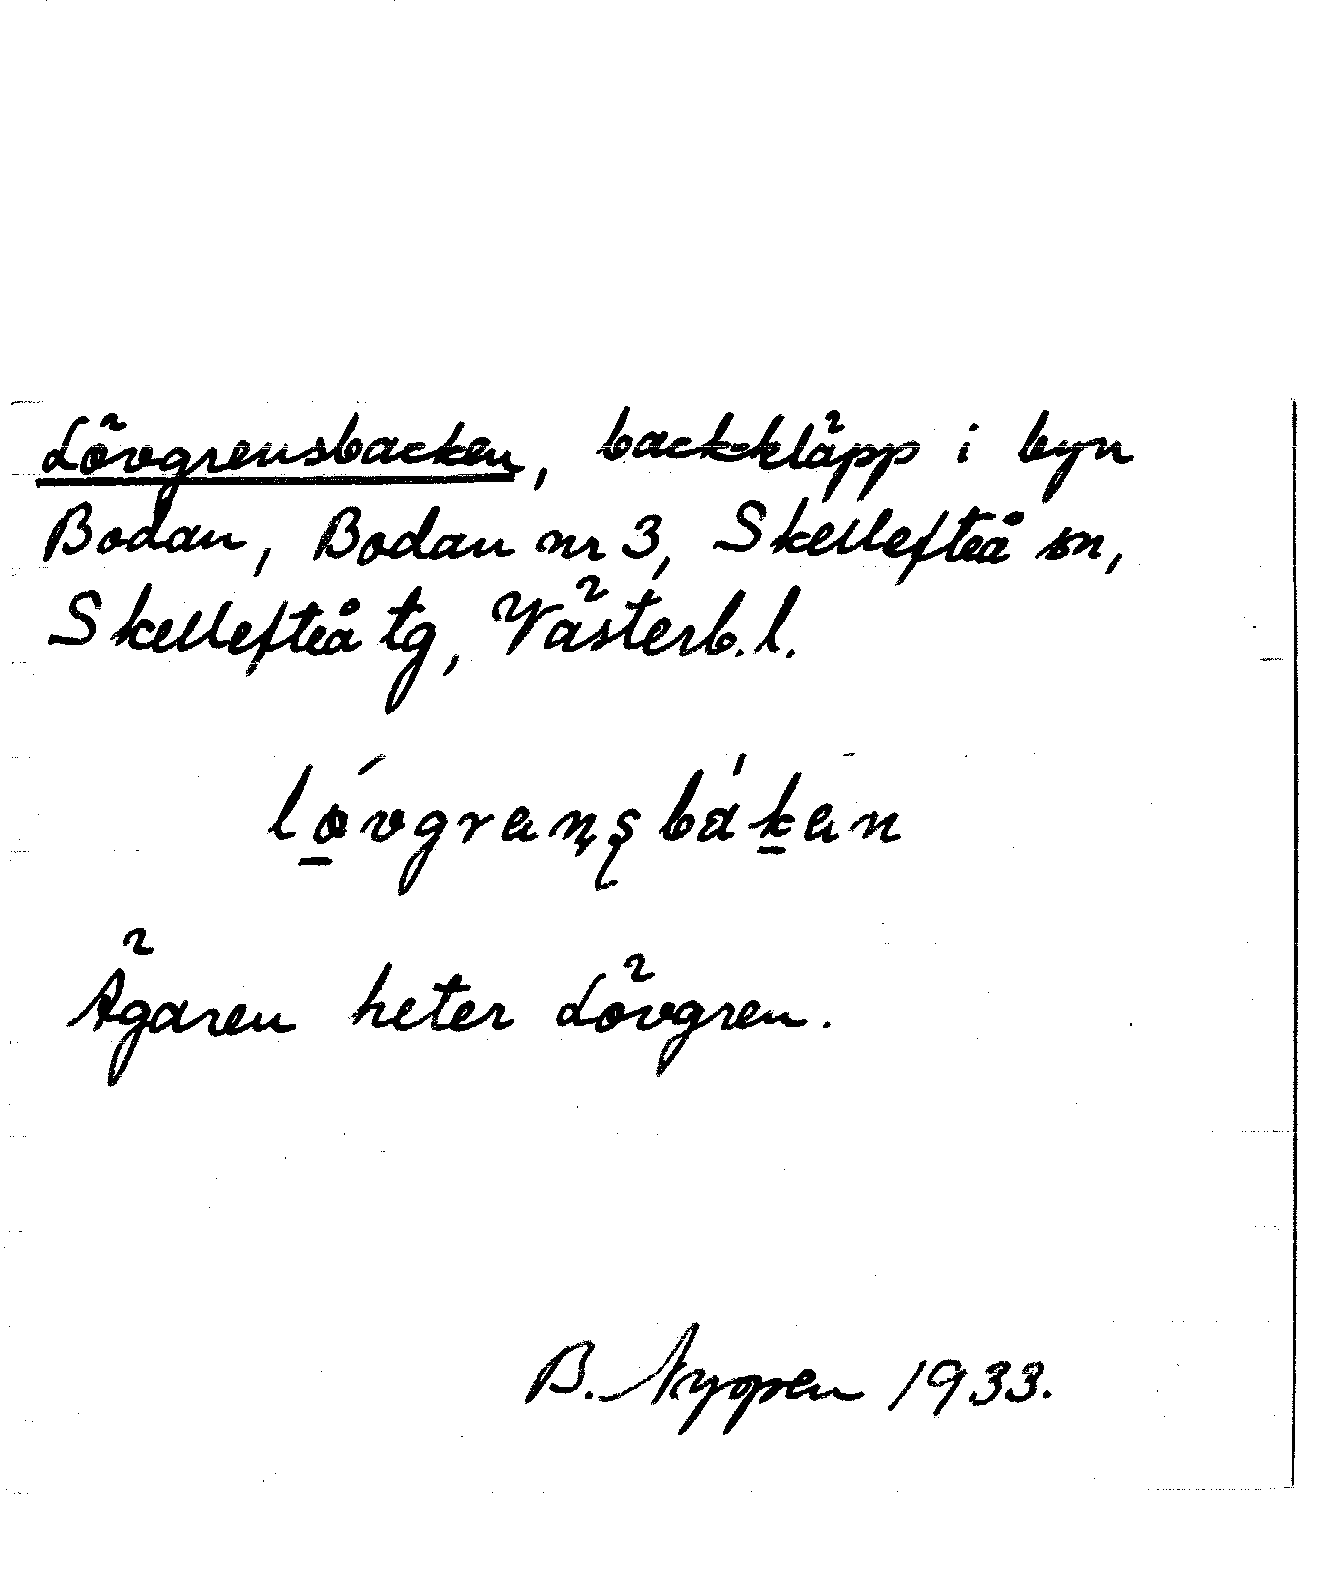 Lövgrensbacken, backkläpp i byn
Bodan, Bodan nr 3, Skellefteå sn,
Skellefteå tg, Västerb. l.
lǿvgrenşbákan
Ägaren heter Lövgren.
B. 1933.